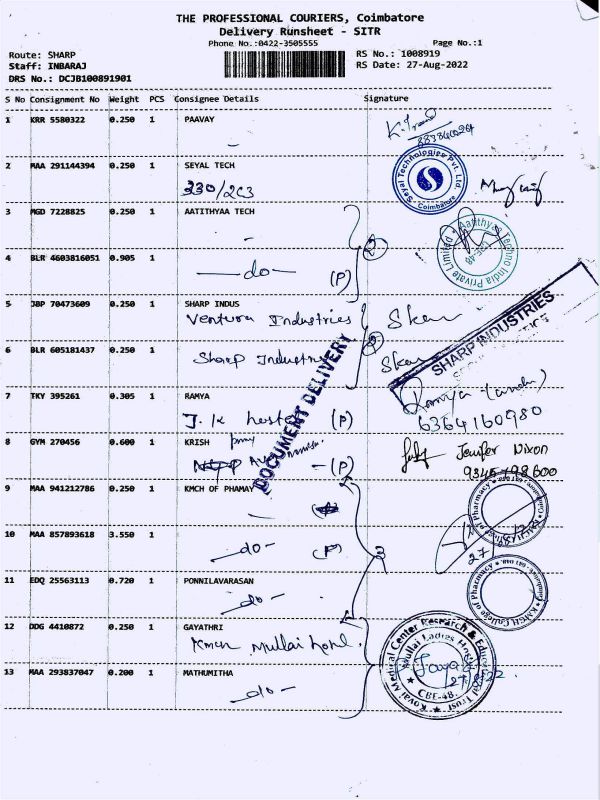 THE PROFESSIONAL COURIERS, Coimbatore
Delivery Runsheet - SITR
Phone No.:0422-3505555 Page No.:1
Route: SHARP RS No.: 1008919
Staff: INBARAJ RS Date: 27-Aug-2022
DRS No.: DCJB100891901
S No Consignment No Weight PCS Consignee Details Signature
1 KRR 5580322 0.250 1 PAAVAY
2 MAA 291144394 0.250 1 SEYAL TECH
330/2C3
Seyal Technologies Pvt. Ltd. Coimbatore
3 MGD 7228825 0.250 1 AATITHYAA TECH
2
Aatithyaa Techno India Private Limited
4 BLR 4603816051 0.905 1
-do- (P)
5 JBP 70473609 0.250 1 SHARP INDUS
Ventura Industries
SHARP INDUSTRIES
6 BLR 605181437 0.250 1
Sharp Industries
DOCUMENT DELIVERY
7 TKY 395261 0.305 1 RAMYA
J. K hostel (P)
Ramya
6364160980
8 GYM 270456 0.600 1 KRISH
-(P)
Jenifer Nixon
9 MAA 941212786 0.250 1 KMCH OF PHAMAY
KMCH College of Pharmacy
10 MAA 857893618 3.550 1
-do- (P) 3
27
11 EDQ 25563113 0.720 1 PONNILAVARASAN
-do-
KMCH College of Pharmacy
12 DDG 4410872 0.250 1 GAYATHRI
Kmch Mullai hotel.
Kovai Medical Center Research & Educational Trust
Mullai Ladies Hostel
CBE-48.
13 MAA 293837047 0.200 1 MATHUMITHA
-do-